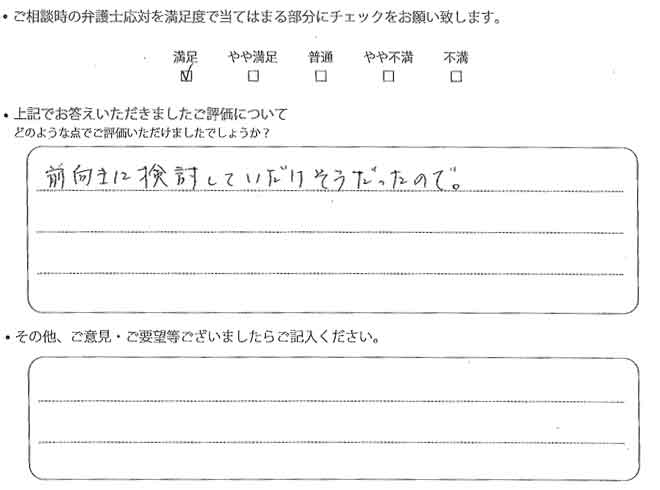 ・ご相談時の弁護士応対を満足度で当てはまる部分にチェックをお願い致します。
満足 やや満足 普通 やや不満 不満
☑ □ □ □ □
・上記でお答えいただきましたご評価について
どのような点でご評価いただけましたでしょうか?
前向きに検討していだけそうだったので。
・その他、ご意見・ご要望等ございましたらご記入ください。